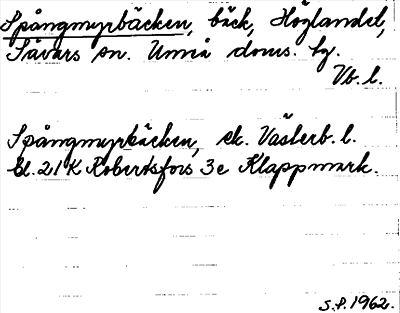 Spångmyrbäcken, bäck, Höglandet,
Sävars sn. Umeå doms. hg.
Vb. l.
Spångmyrbäcken, ek. Västerb. l.
bl. 21 K Robertsfors 3e Klappmark.
S.P. 1962.